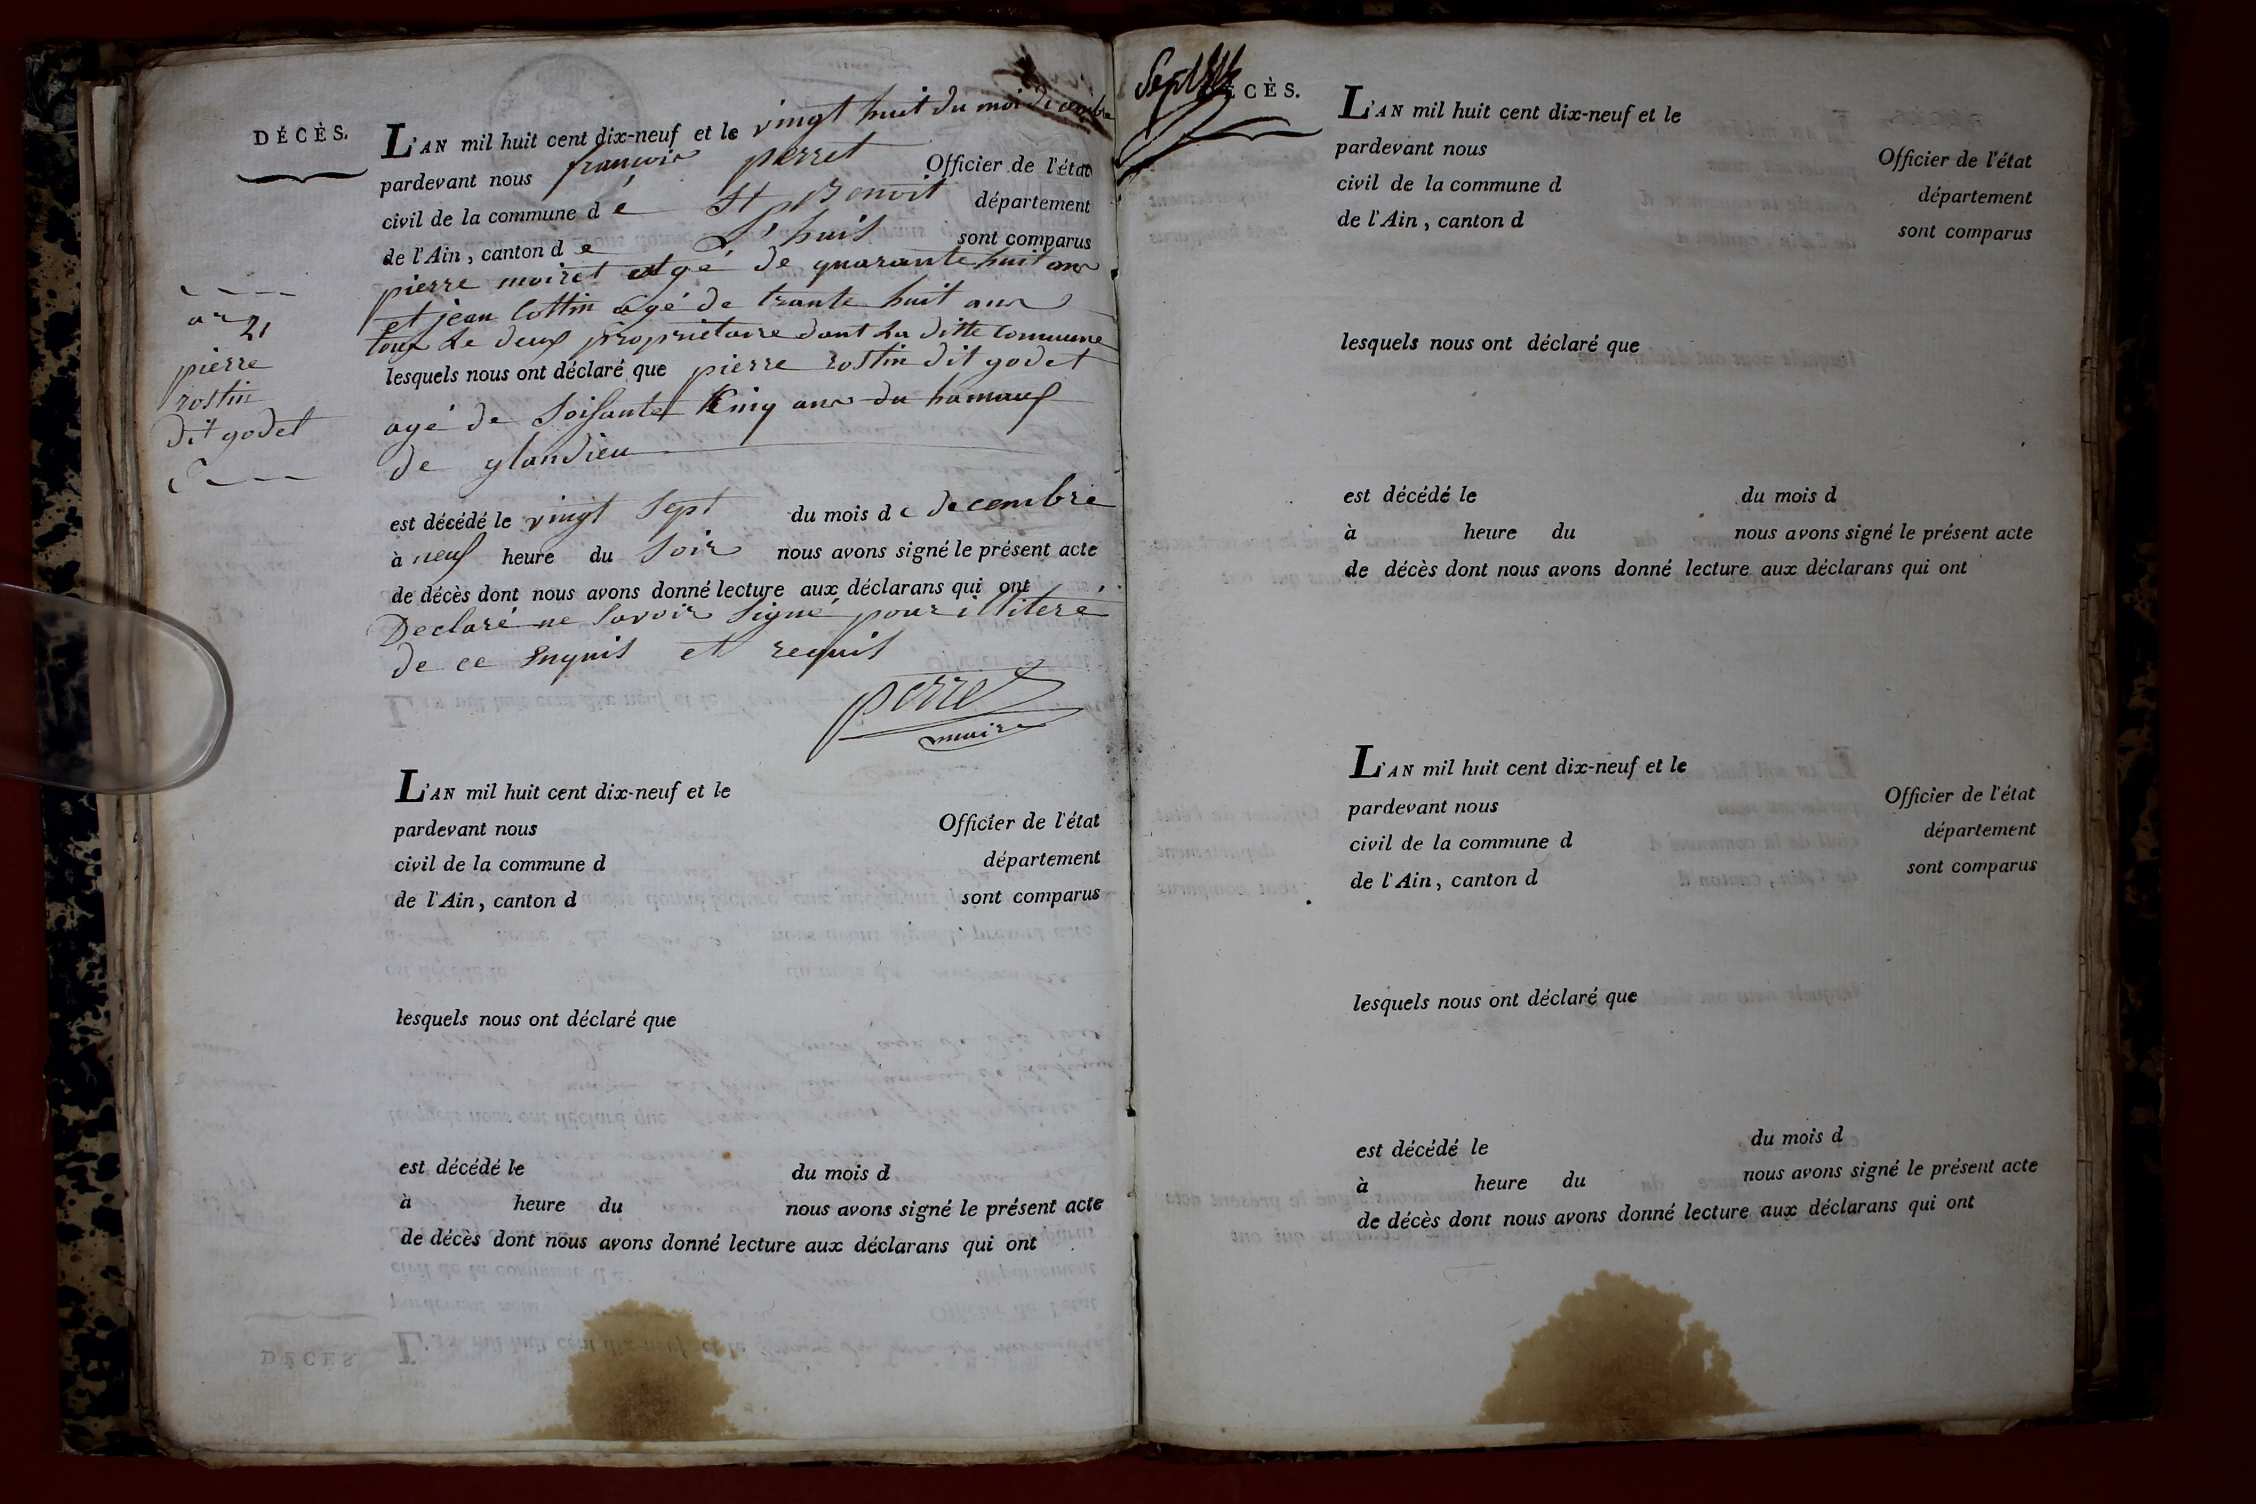 DÉCÈS.
L'AN mil huit cent dix-neuf et le vingt huit du moi decembre
pardevant nous françois perret Officier de l'état
civil de la commune d é St Benoit département
de l'Ain, canton d e L'huis sont comparus
pierre moiret agé de quarante huit ans
et jean Cottin agé de trante huit ans
tous Le deux propriétaire dant La ditte Commune
lesquels nous ont déclaré que pierre rostin dit godet
agé de Soisante Cinq ans du hamaux
de glandieu
est décédé le vingt Sept du mois d e decembre
à neuf heure du Soir nous avons signé le présent acte
de décès dont nous avons donné lecture aux déclarans qui ont
Declaré ne Savoir Signé pour illiteré
de ce Enquis et requis
perret
maire
21
pierre
rostin
dit godet
L'AN mil huit cent dix-neuf et le
pardevant nous Officier de l'état
civil de la commune d département
de l'Ain, canton d sont comparus
lesquels nous ont déclaré que
est décédé le du mois d
à heure du nous avons signé le présent acte
de décès dont nous avons donné lecture aux déclarans qui ont
DÉCÈS.
L'AN mil huit cent dix-neuf et le
pardevant nous Officier de l'état
civil de la commune d département
de l'Ain, canton d sont comparus
lesquels nous ont déclaré que
est décédé le du mois d
à heure du nous avons signé le présent acte
de décès dont nous avons donné lecture aux déclarans qui ont
L'AN mil huit cent dix-neuf et le
pardevant nous Officier de l'état
civil de la commune d département
de l'Ain, canton d sont comparus
lesquels nous ont déclaré que
est décédé le du mois d
à heure du nous avons signé le présent acte
de décès dont nous avons donné lecture aux déclarans qui ont